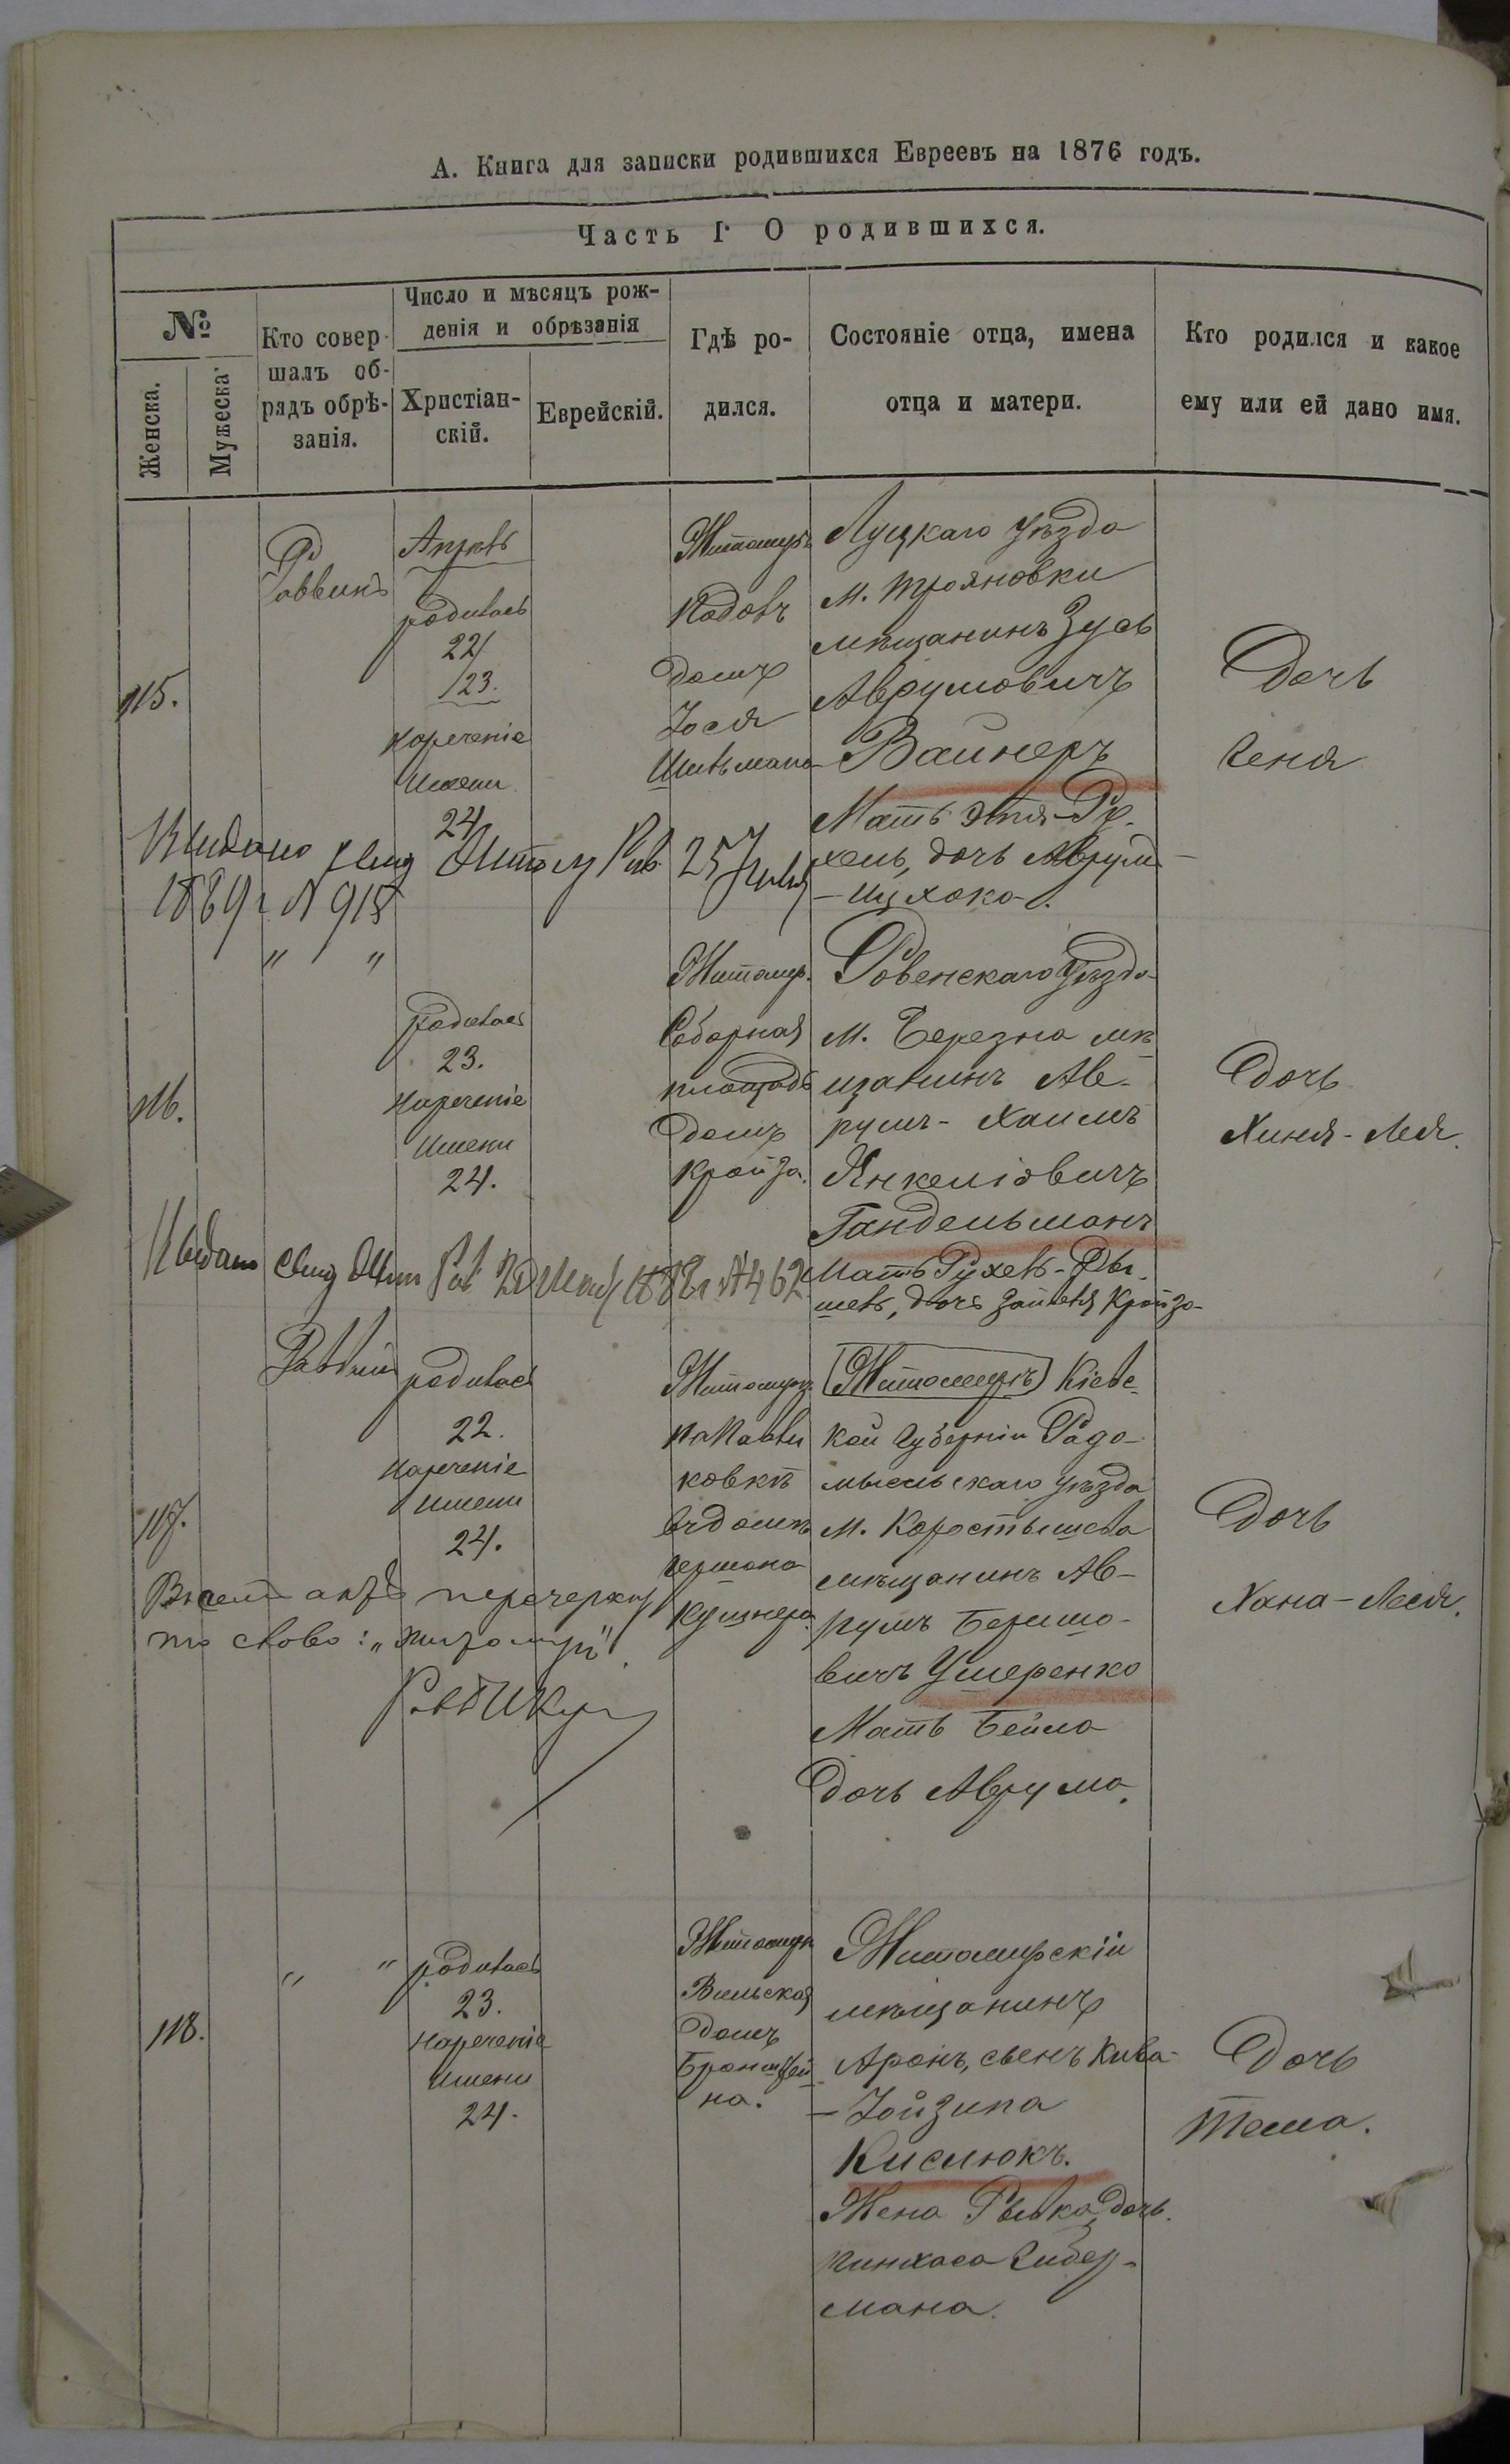 А. Книга для записки родившихся Евреевъ на 1876 годъ.
Часть I О родившихся.
№
Женска.
Мужеска
Кто совер-
шалъ об-
рядъ обрѣ-
занія.
Число и мѣсяцъ рож-
денія и обрѣзанія
Христіан-
скій.
Еврейскій.
Гдѣ ро-
дился.
Состояніе отца, имена
отца и матери.
Кто родился и какое
ему или ей дано имя.
115.
Раввинъ
родилась
22
23.
нареченіе
имени
24
Житомиръ
домъ
Іося
Луцкаго уѣзда
м. Трояновки
мѣщанинъ Зусь
Аврумовичъ
Вайнеръ
Мать Этя-Ру-
хель, дочь Аврум
-Ицхока.
Дочь
Геня
25
1889 г. № 915
116.
" "
родилась
23.
нареченіе
имени
24.
Житомир.
Соборная
площадь
домъ
Кройза.
Ровенскаго уѣзда
м. Березна мѣ-
щанинъ Ав-
румъ-Хаимъ
Янкеліовичъ
Гандельманъ
Мать Рухель-Ры-
шель, дочь Кройза
Дочь
Хиня-Лея.
№ 462
117.
Раввинъ
родилась
22.
нареченіе
имени
24.
Житомиръ
Кушнера.
(Житомиръ) Кіевс-
кой Губерніи Радо-
мысльскаго уѣзда
м. Коростышева
мѣщанинъ Ав-
румъ Бершо-
вичъ Ушеренко
Мать Бейла
дочь Аврума.
Дочь
Хана-Лея.
перечеркну
то слово: "Житомиръ".
118.
" "
родилась
23.
нареченіе
имени
24.
Житомиръ
Вильская
домъ
Бронштей-
на.
Житомирскій
мѣщанинъ
Аронъ, сынъ Кива-
-Іойзипа
Кислюкъ.
Жена Рывка дочь
Пинхаса Гибер-
мана.
Дочь
Тема.